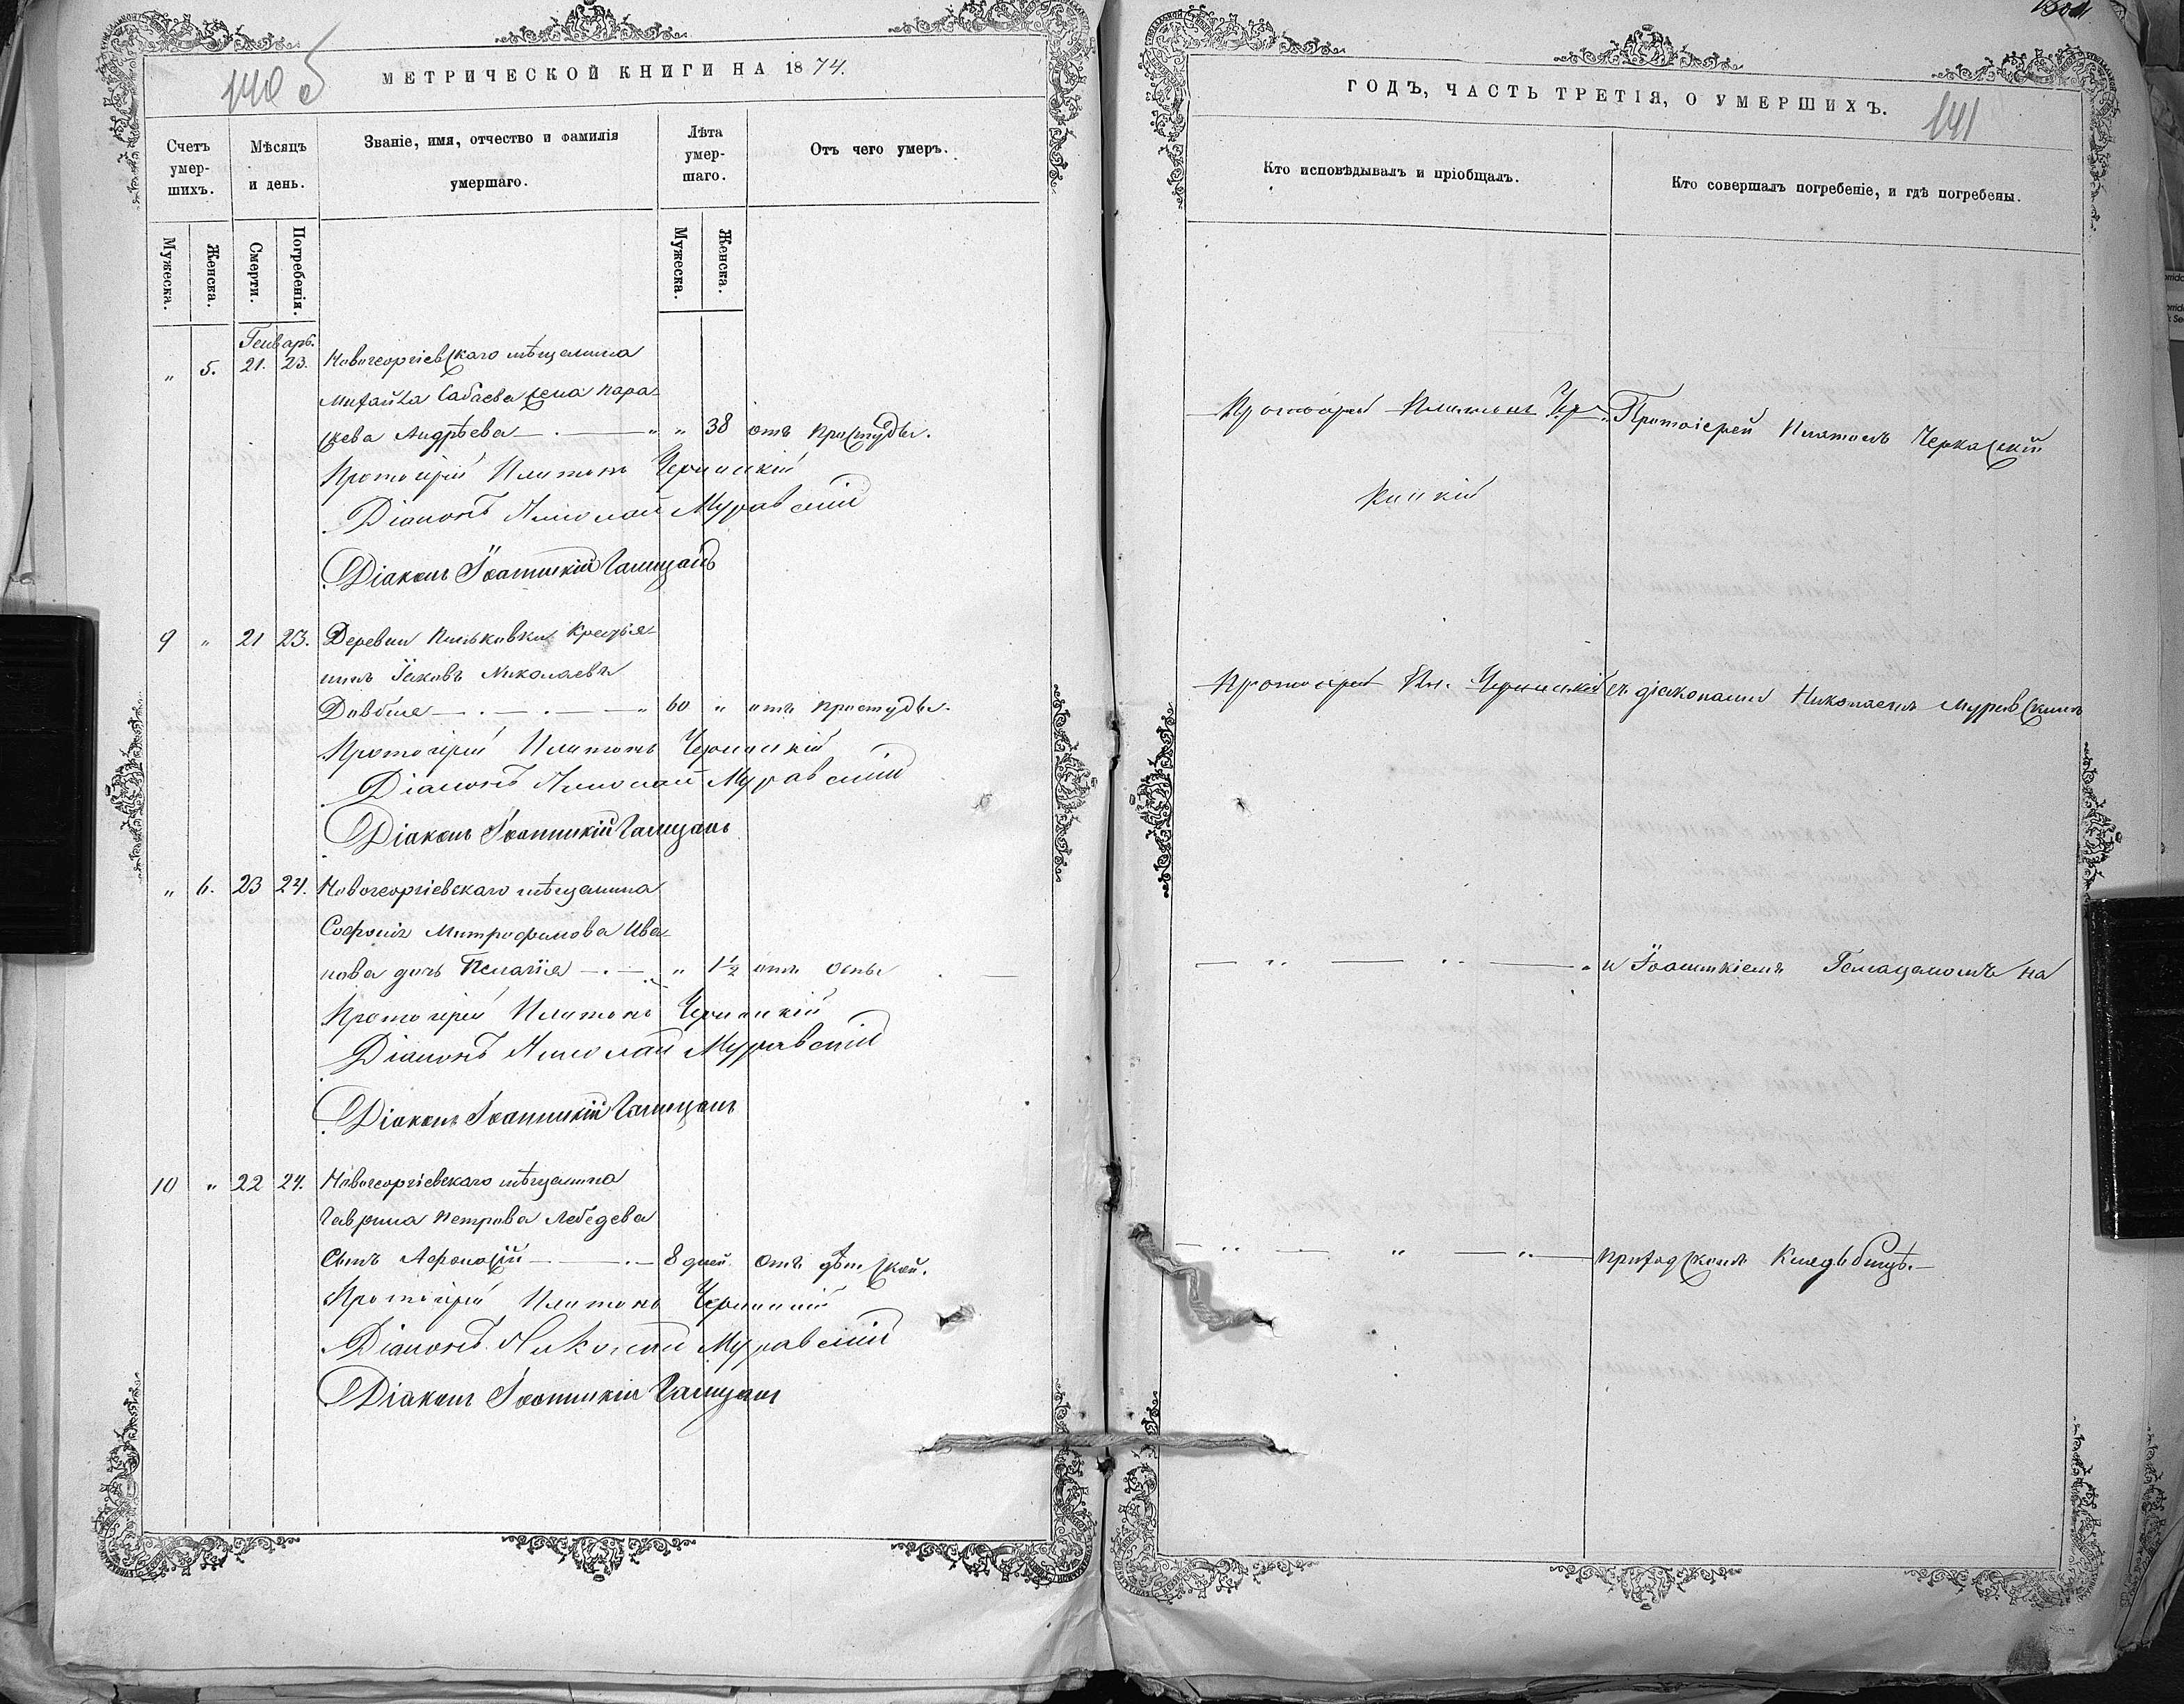 140 об
МЕТРИЧЕСКОЙ КНИГИ НА 1874.
Счетъ умер-шихъ.
Мѣсяцъ и день.
Званіе, имя, отчество и фамилія умершаго.
Лѣта умер-шаго.
Отъ чего умеръ.
Мужеска.
Женска.
Смерти.
Погребенія.
Мужеска.
Женска.
Генварь.
„ 5. 21. 23. Новогеоргіевскаго мѣщанина
Михаила Сабаева жена Пара-
скева Андрѣева „ „ 38 отъ простуды.
Протоіерей Платонъ Черкаскій
Діаконъ Николай Муравскій
Діаконъ Іоанникій Галицанъ
9 „ 21 23. Деревни Паньковки Крестья-
нинъ Іаковъ Николаевъ
Довбня „ 60 „ отъ простуды.
Протоіерей Платонъ Черкаскій
Діаконъ Николай Муравскій
Діаконъ Іоанникій
„ 6. 23 24. Новогеоргіевскаго мѣщанина
Софронія Митрофанова Ива-
нова дочь Пелагія „ 1½ отъ оспы
Протоіерей Платонъ Черкаскій
Діаконъ Николай Муравскій
Діаконъ Іоанникій
10 „ 22 24. Новогеоргіевскаго мѣщанина
Гавріила Петрова Лебедева
Сынъ 8 дней отъ дѣтской.
Протоіерей Платонъ Черкаскій
Діаконъ Николай Муравскій
Діаконъ Іоанникій
ГОДЪ, ЧАСТЬ ТРЕТІЯ, О УМЕРШИХЪ.
141
Кто исповѣдывалъ и пріобщалъ.
Кто совершалъ погребеніе, и гдѣ погребены.
Протоіерей Платонъ Чер- Протоіерей Платонъ Черкаскій
каскій
Протоіерей Пл. Черкаскій съ діаконами Николаемъ Муравскимъ
„ „ и Іоанникіемъ на
„ „ „ приходскомъ Кладбищѣ.